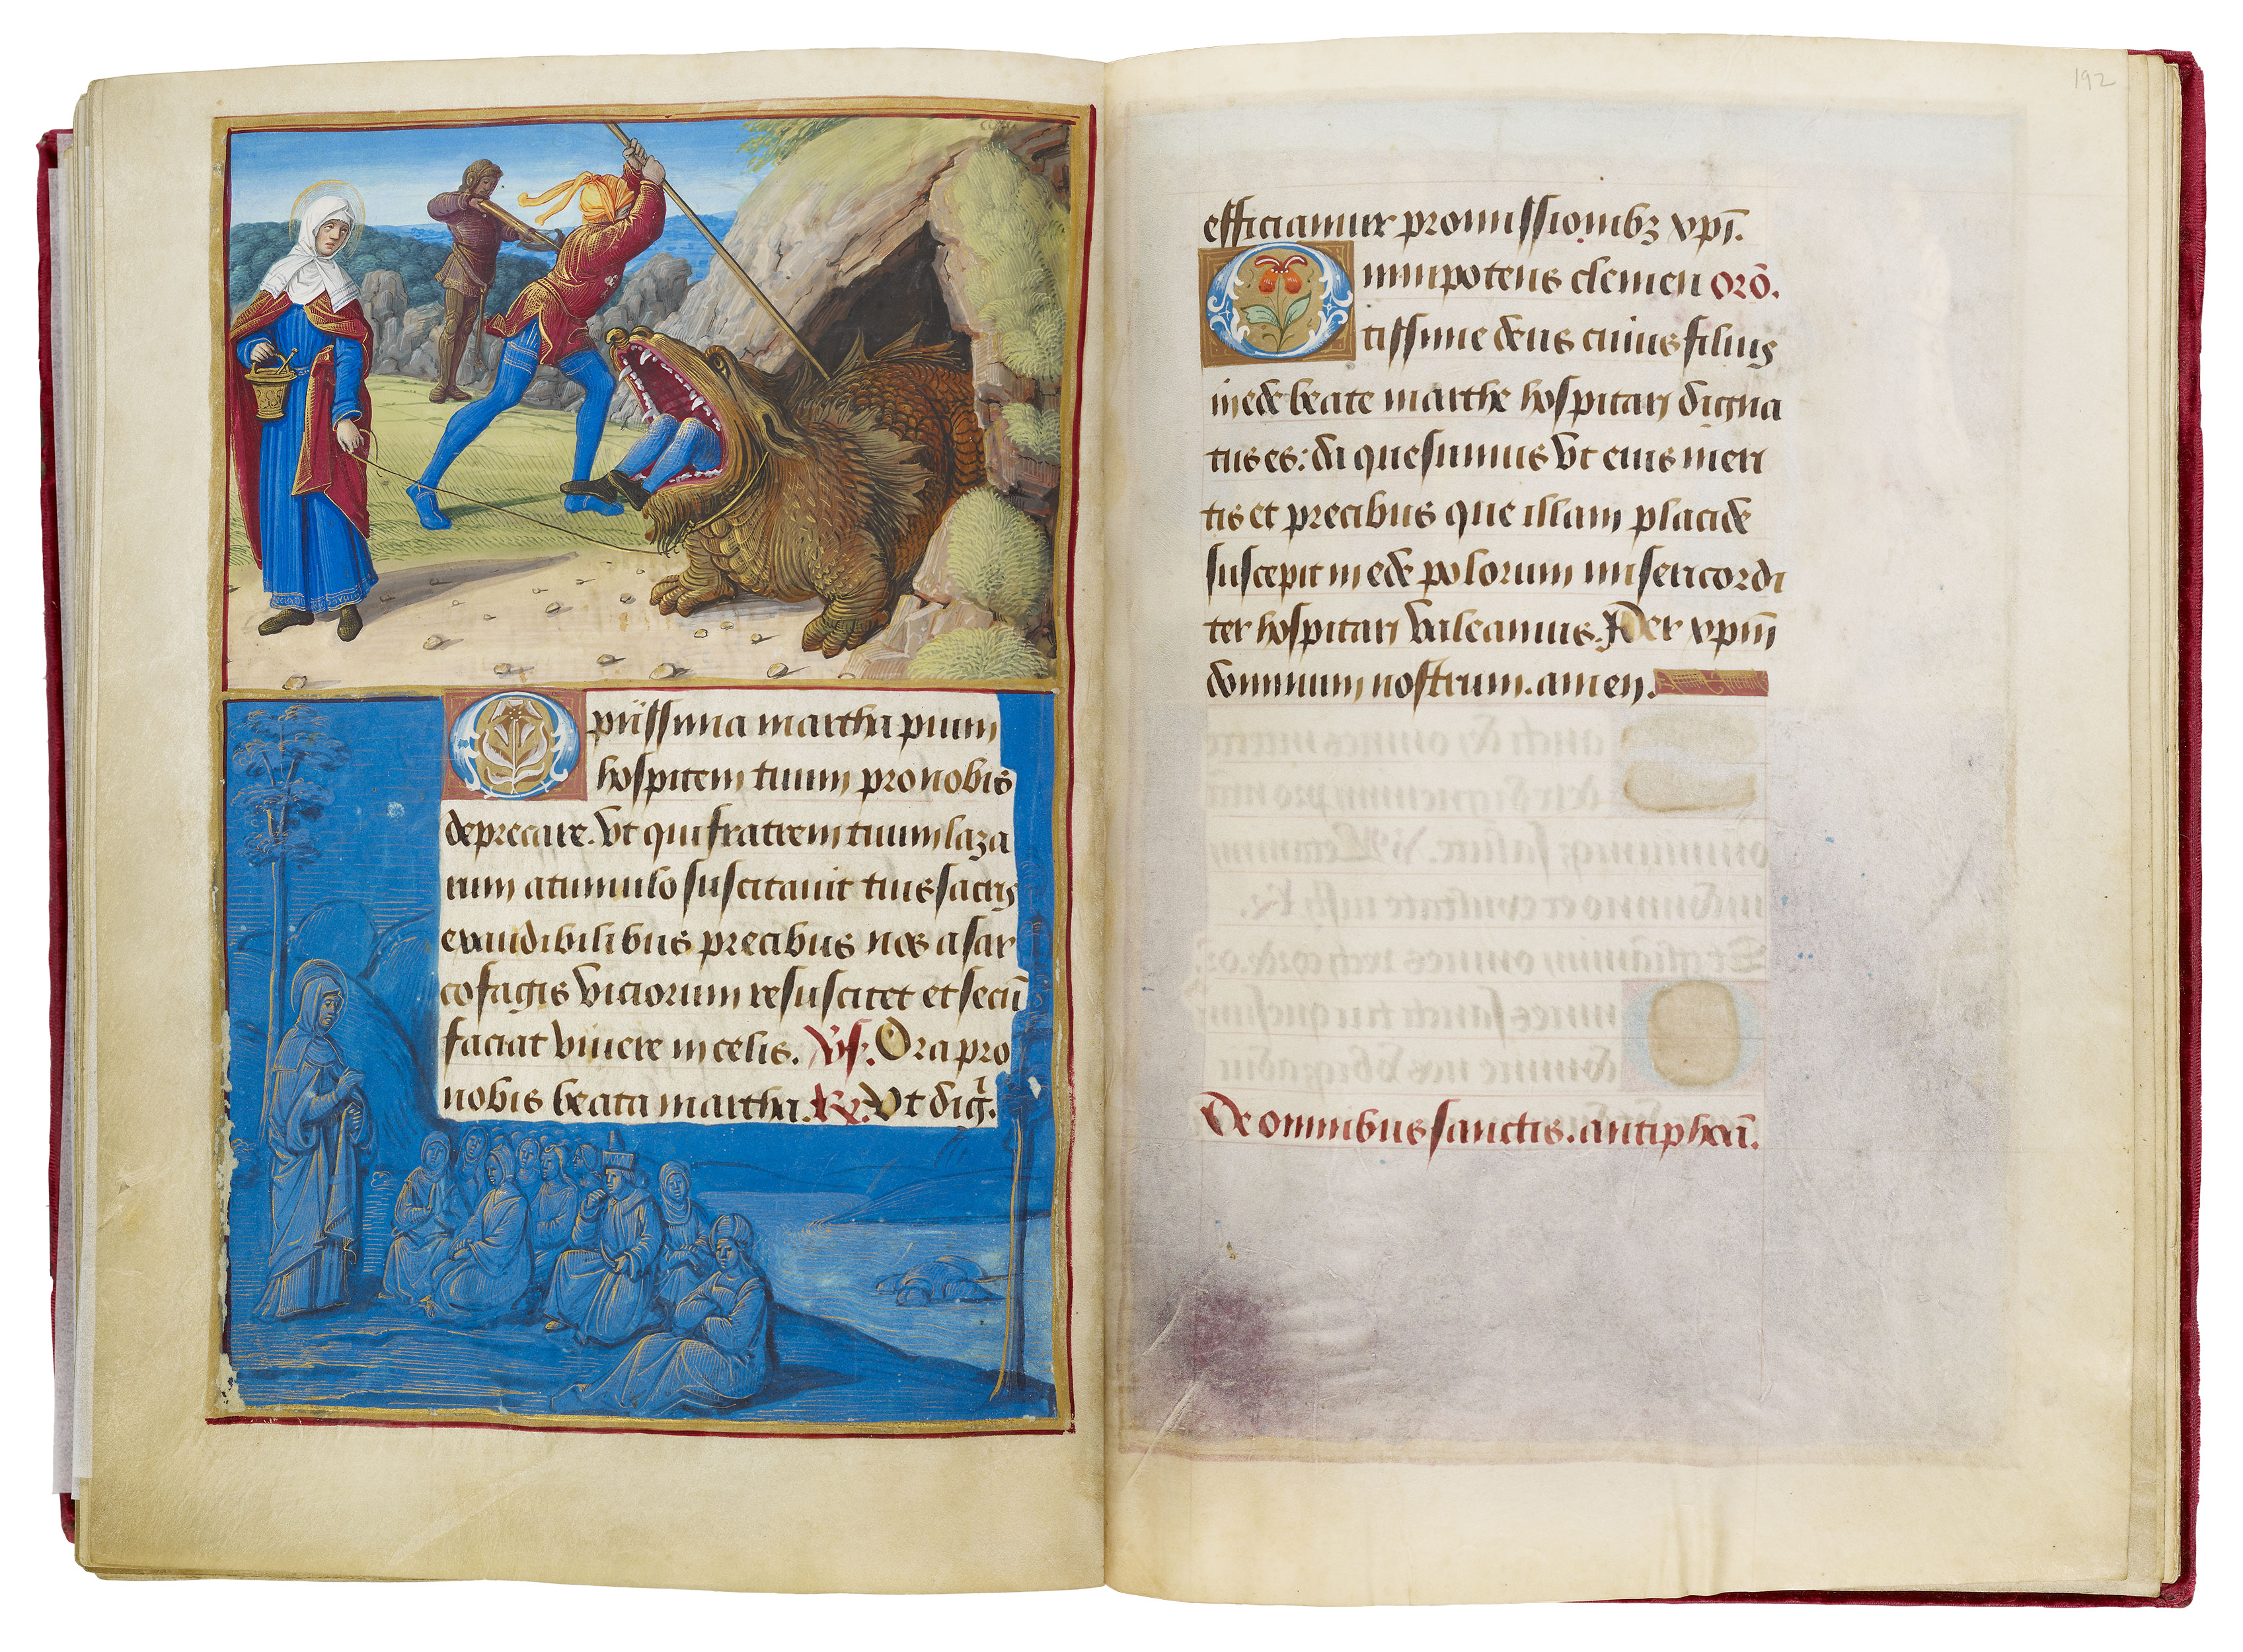 O piissima martha pium
hospitem tuum pro nobis
deprecare. Vt qui fratrem tuum laza
rum a tumulo suscitauit tuis sacris
exaudibilibus precibus nos a sar
cofagis viciorum resuscitet et secū
faciat viuere in celis. Vs. Ora pro
nobis beata martha. R. Vt dig.
192
efficiamur promissionibz xpī.
Omnipotens clemen orō.
tissime deus cuius filius
in ede beate marthe hospitari digna
tus es: da quesumus vt eius meri
tis et precibus que illam placide
suscepit in ede polorum misericordi
ter hospitari valeamus. Per xpm̄
dominum nostrum. amen.
De omnibus sanctis. antiphoā.